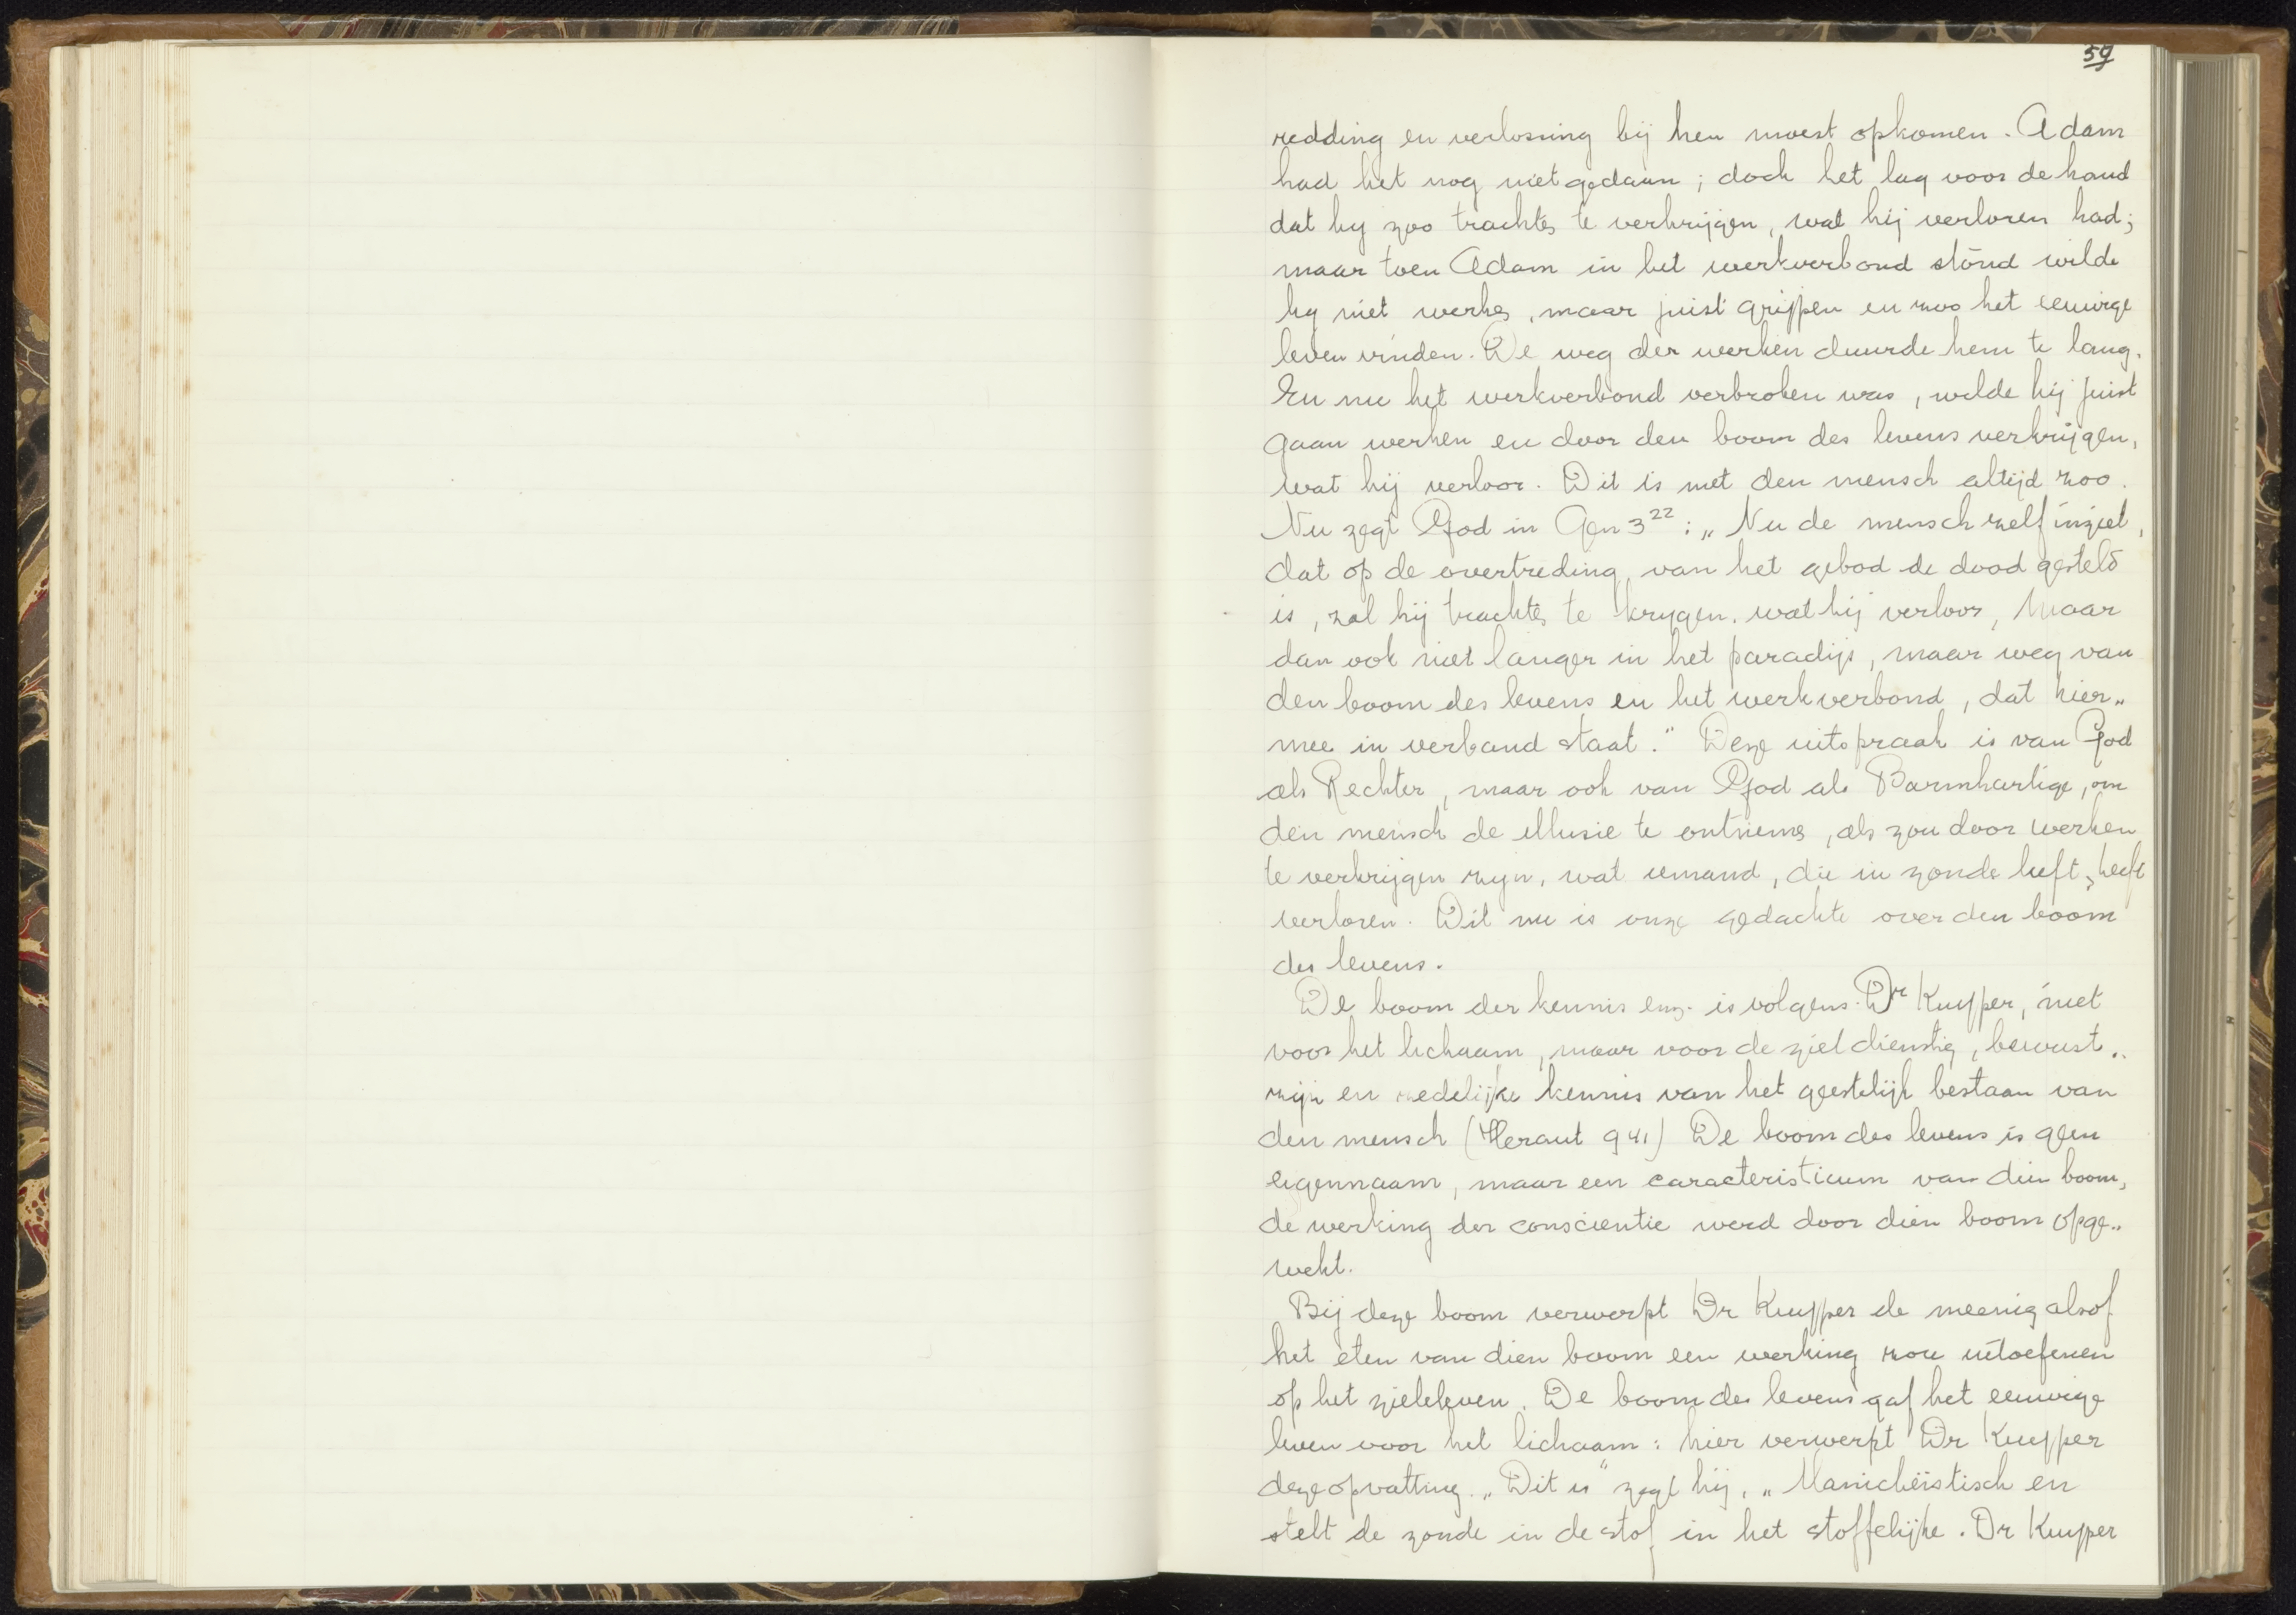 59
redding en verlossing bij hen moest opkomen. Adam
had het nog niet gedaan; doch het lag voor de hand
dat hy zoo trachten te verkrijgen, wat hij verloren had;
maar toen Adam in het werkverbond stond wilde
hy niet werken, maar juist grijpen en zoo het eeuwige
leven vinden. De weg der werken duurde hem te lang.
En nu het werkverbond verbroken was, wilde hij juist
gaan werken en door den boom des levens verkrijgen,
wat hij verloor. Dit is met den mensch altijd zoo.
Nu zegt God in Gen 3²² : „Nu de mensch zelf inziet,
dat op de overtreding, van het gebod de dood gesteld
is, zal hij trachten te krygen. wat hij verloor, Maar
dan ook niet langer in het paradijs, maar weg van
den boom des levens en het werkverbond, dat hier„
mee in verband staat." Deze uitspraak is van God
als Rechter, maar ook van God als Barmhartige, om
den mensch de illusie te ontnemen, als zou door werken
te verkrijgen zyn, wat iemand, die in zonde leeft, heeft
verloren. Dit nu is onze gedachte over den boom
des levens.
De boom der kennis enz. is volgens Dr Kuyper, niet
voor het lichaam, maar voor de ziel dienstig, bewust„
zijn en zedelijke kennis van het geestelijk bestaan van
den mensch (Heraut 941) De boom des levens is geen
eigennaam, maar een caracteristicum van dien boom,
de werking der conscientie werd door dien boom opge„
wekt.
Bij deze boom verwerpt Dr Kuyper de meenig alsof
het eten van dien boom een werking zou uitoefenen
op het zieleleven. De boom des levens gaf het eeuwige
leven voor het lichaam: hier verwerpt Dr Kuyper
deze opvatting. „Dit is" zegt hij, „Manicheïstisch en
stelt de zonde in de stof in het stoffelijke. Dr Kuyper